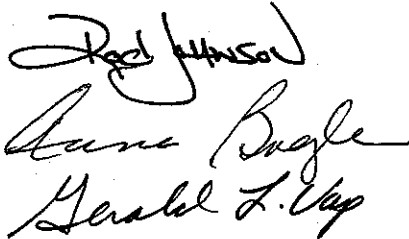 Rod Johnson
Anna Bogle
Gerald L. Vap